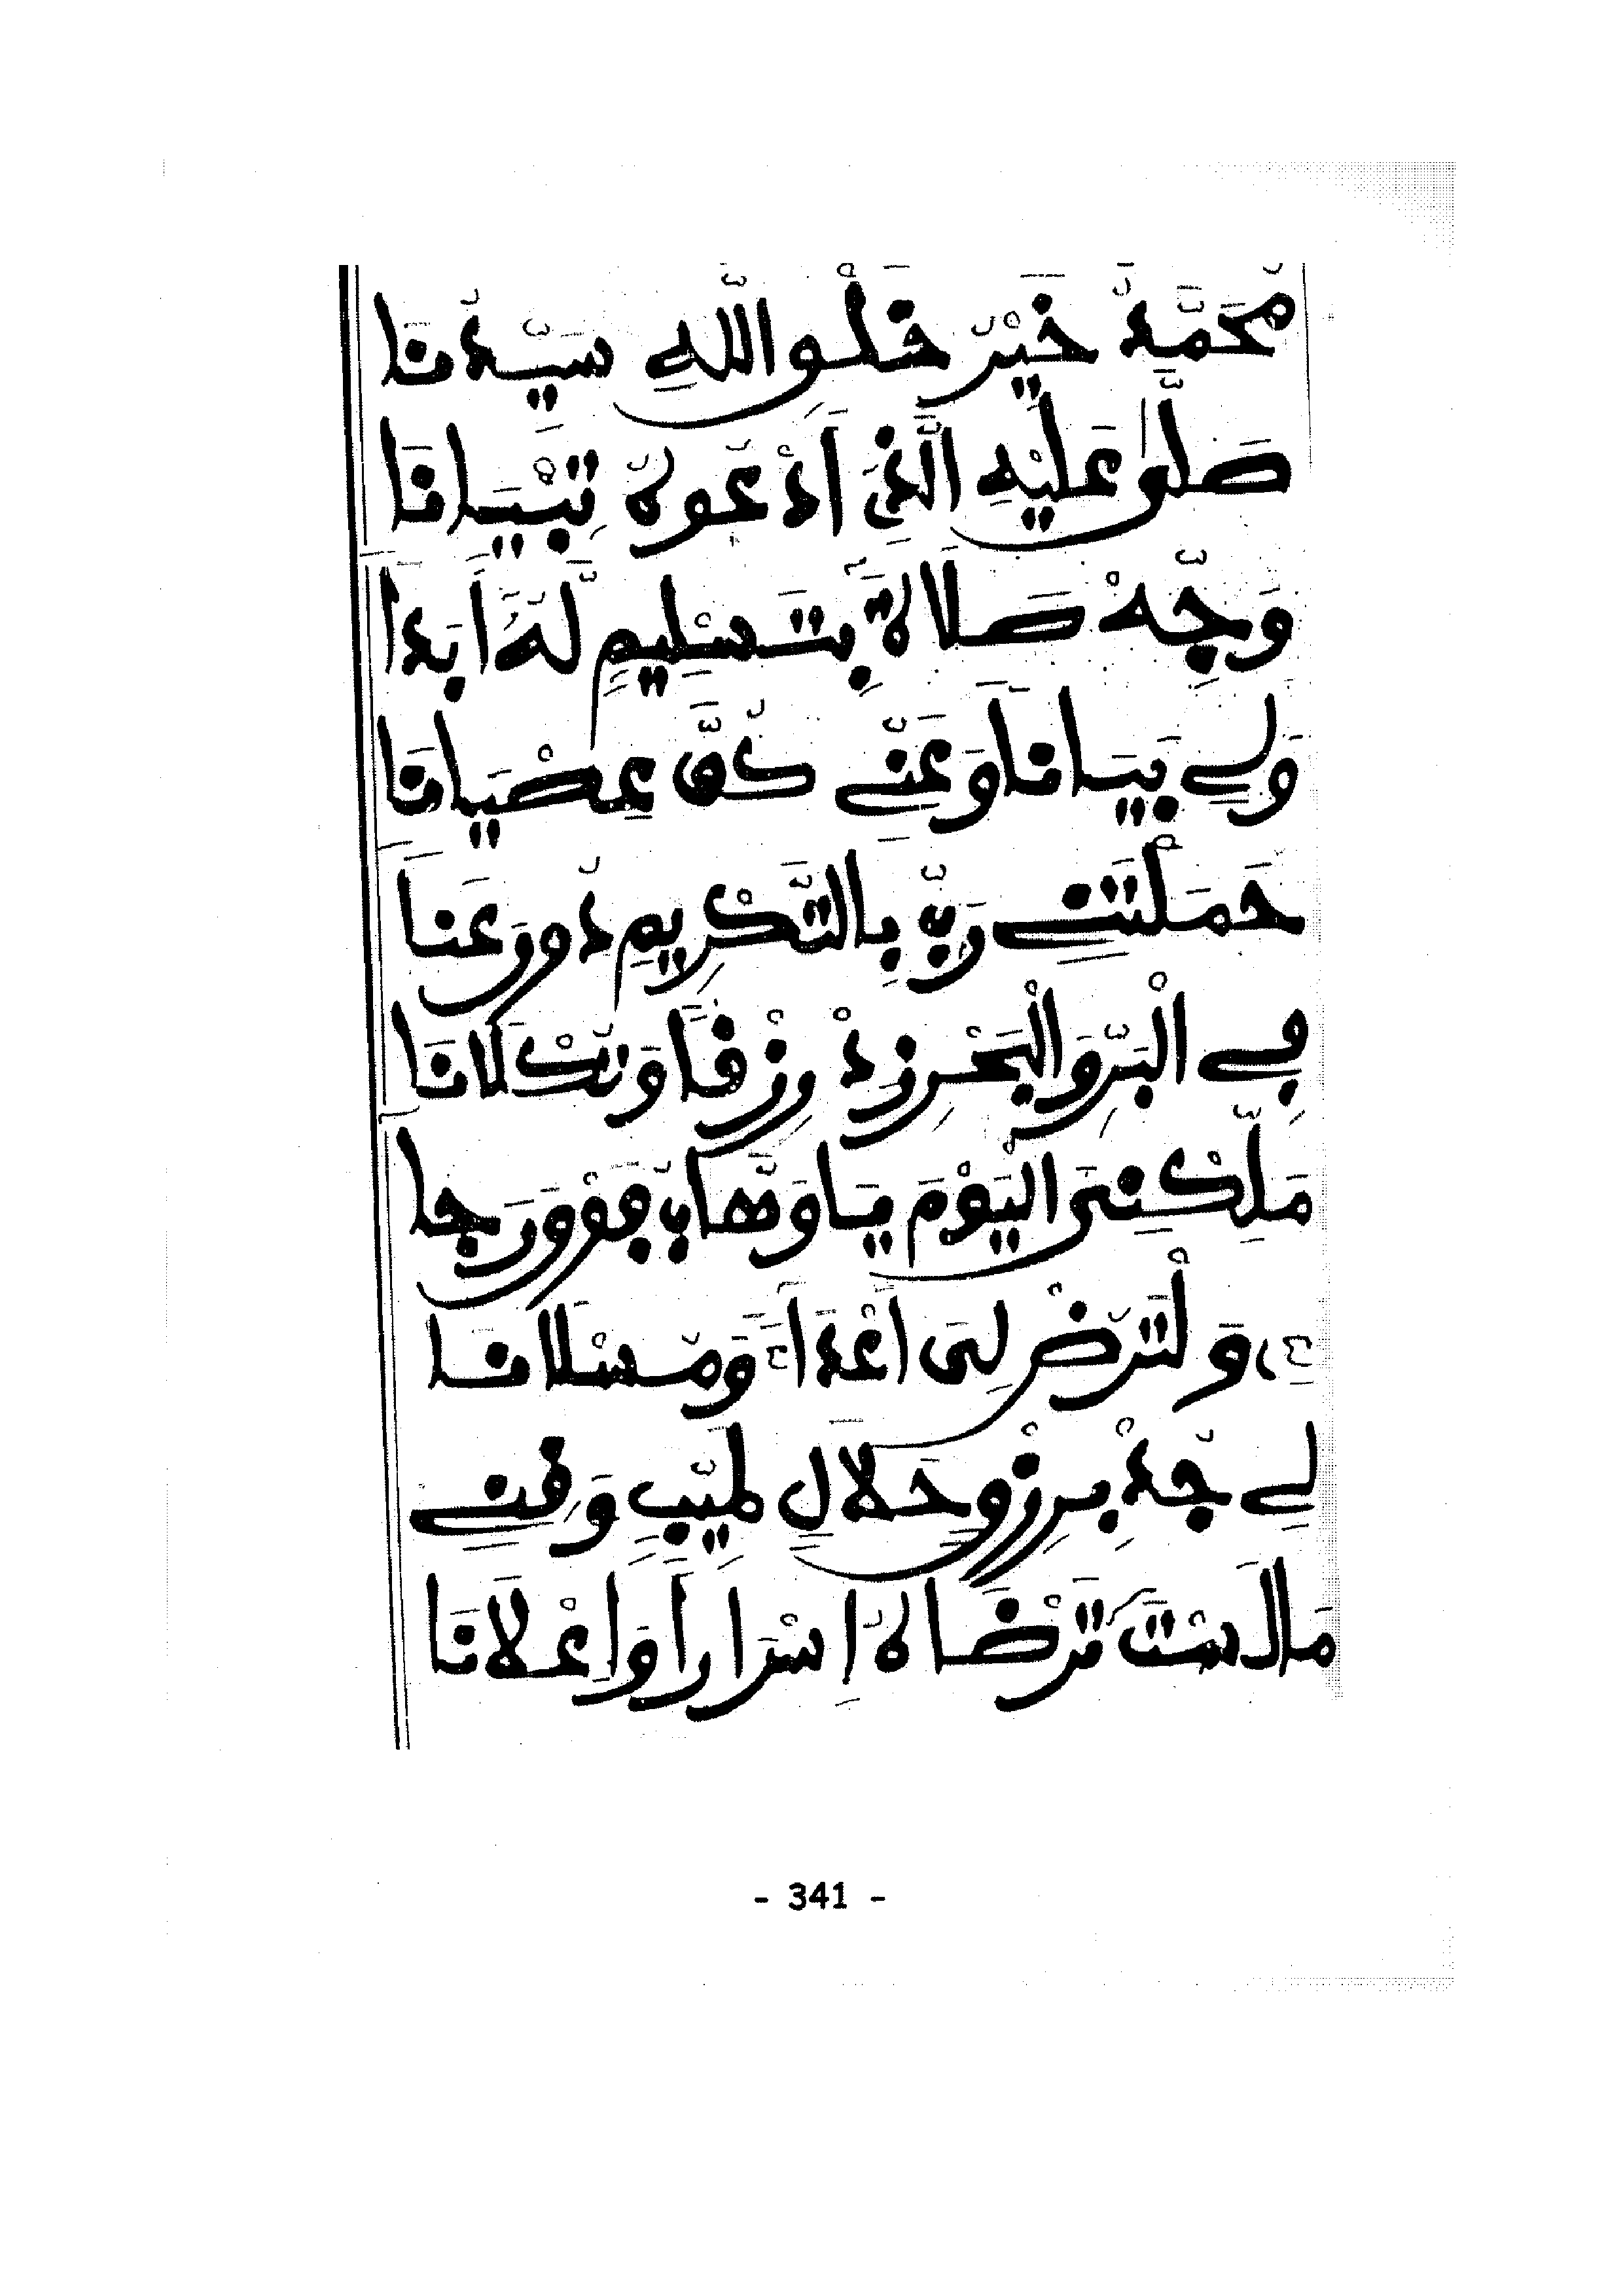 مُحَمَّدٌ خَيْرُ خَلْقِ اللَّهِ سَيِّدُنَا
صَلَّى عَلَيْهِ الَّذِي أَدْعُوهُ تِبْيَانَا
وَجِّهْ صَلَاةً بِتَسْلِيمٍ لَّهُ أَبَدًا
وَلِي بَيَانًا وَعَنِّي كُفَّ عِصْيَانَا
حَمَلْتَنِي رَبِّ بِالتَّكْرِيمِ دُونَ عَنَا
فِي الْبَرِّ وَالْبَحْرِ زِدْ رِزْقًا وَتُكْلَانَا
مَلِّكْنِيَ الْيَوْمَ يَا وَهَّابُ فَوْقَ رَجَا
وَلْتُرْضِ لِيَ أَعْدَاءً وَمُسْلَانَا
لِي جُدْ بِرِزْقٍ حَلَالٍ طَيِّبٍ وَقِنِي
مَا لَسْتَ تَرْضَاهُ إِسْرَارًا وَإِعْلَانَا
- 341 -